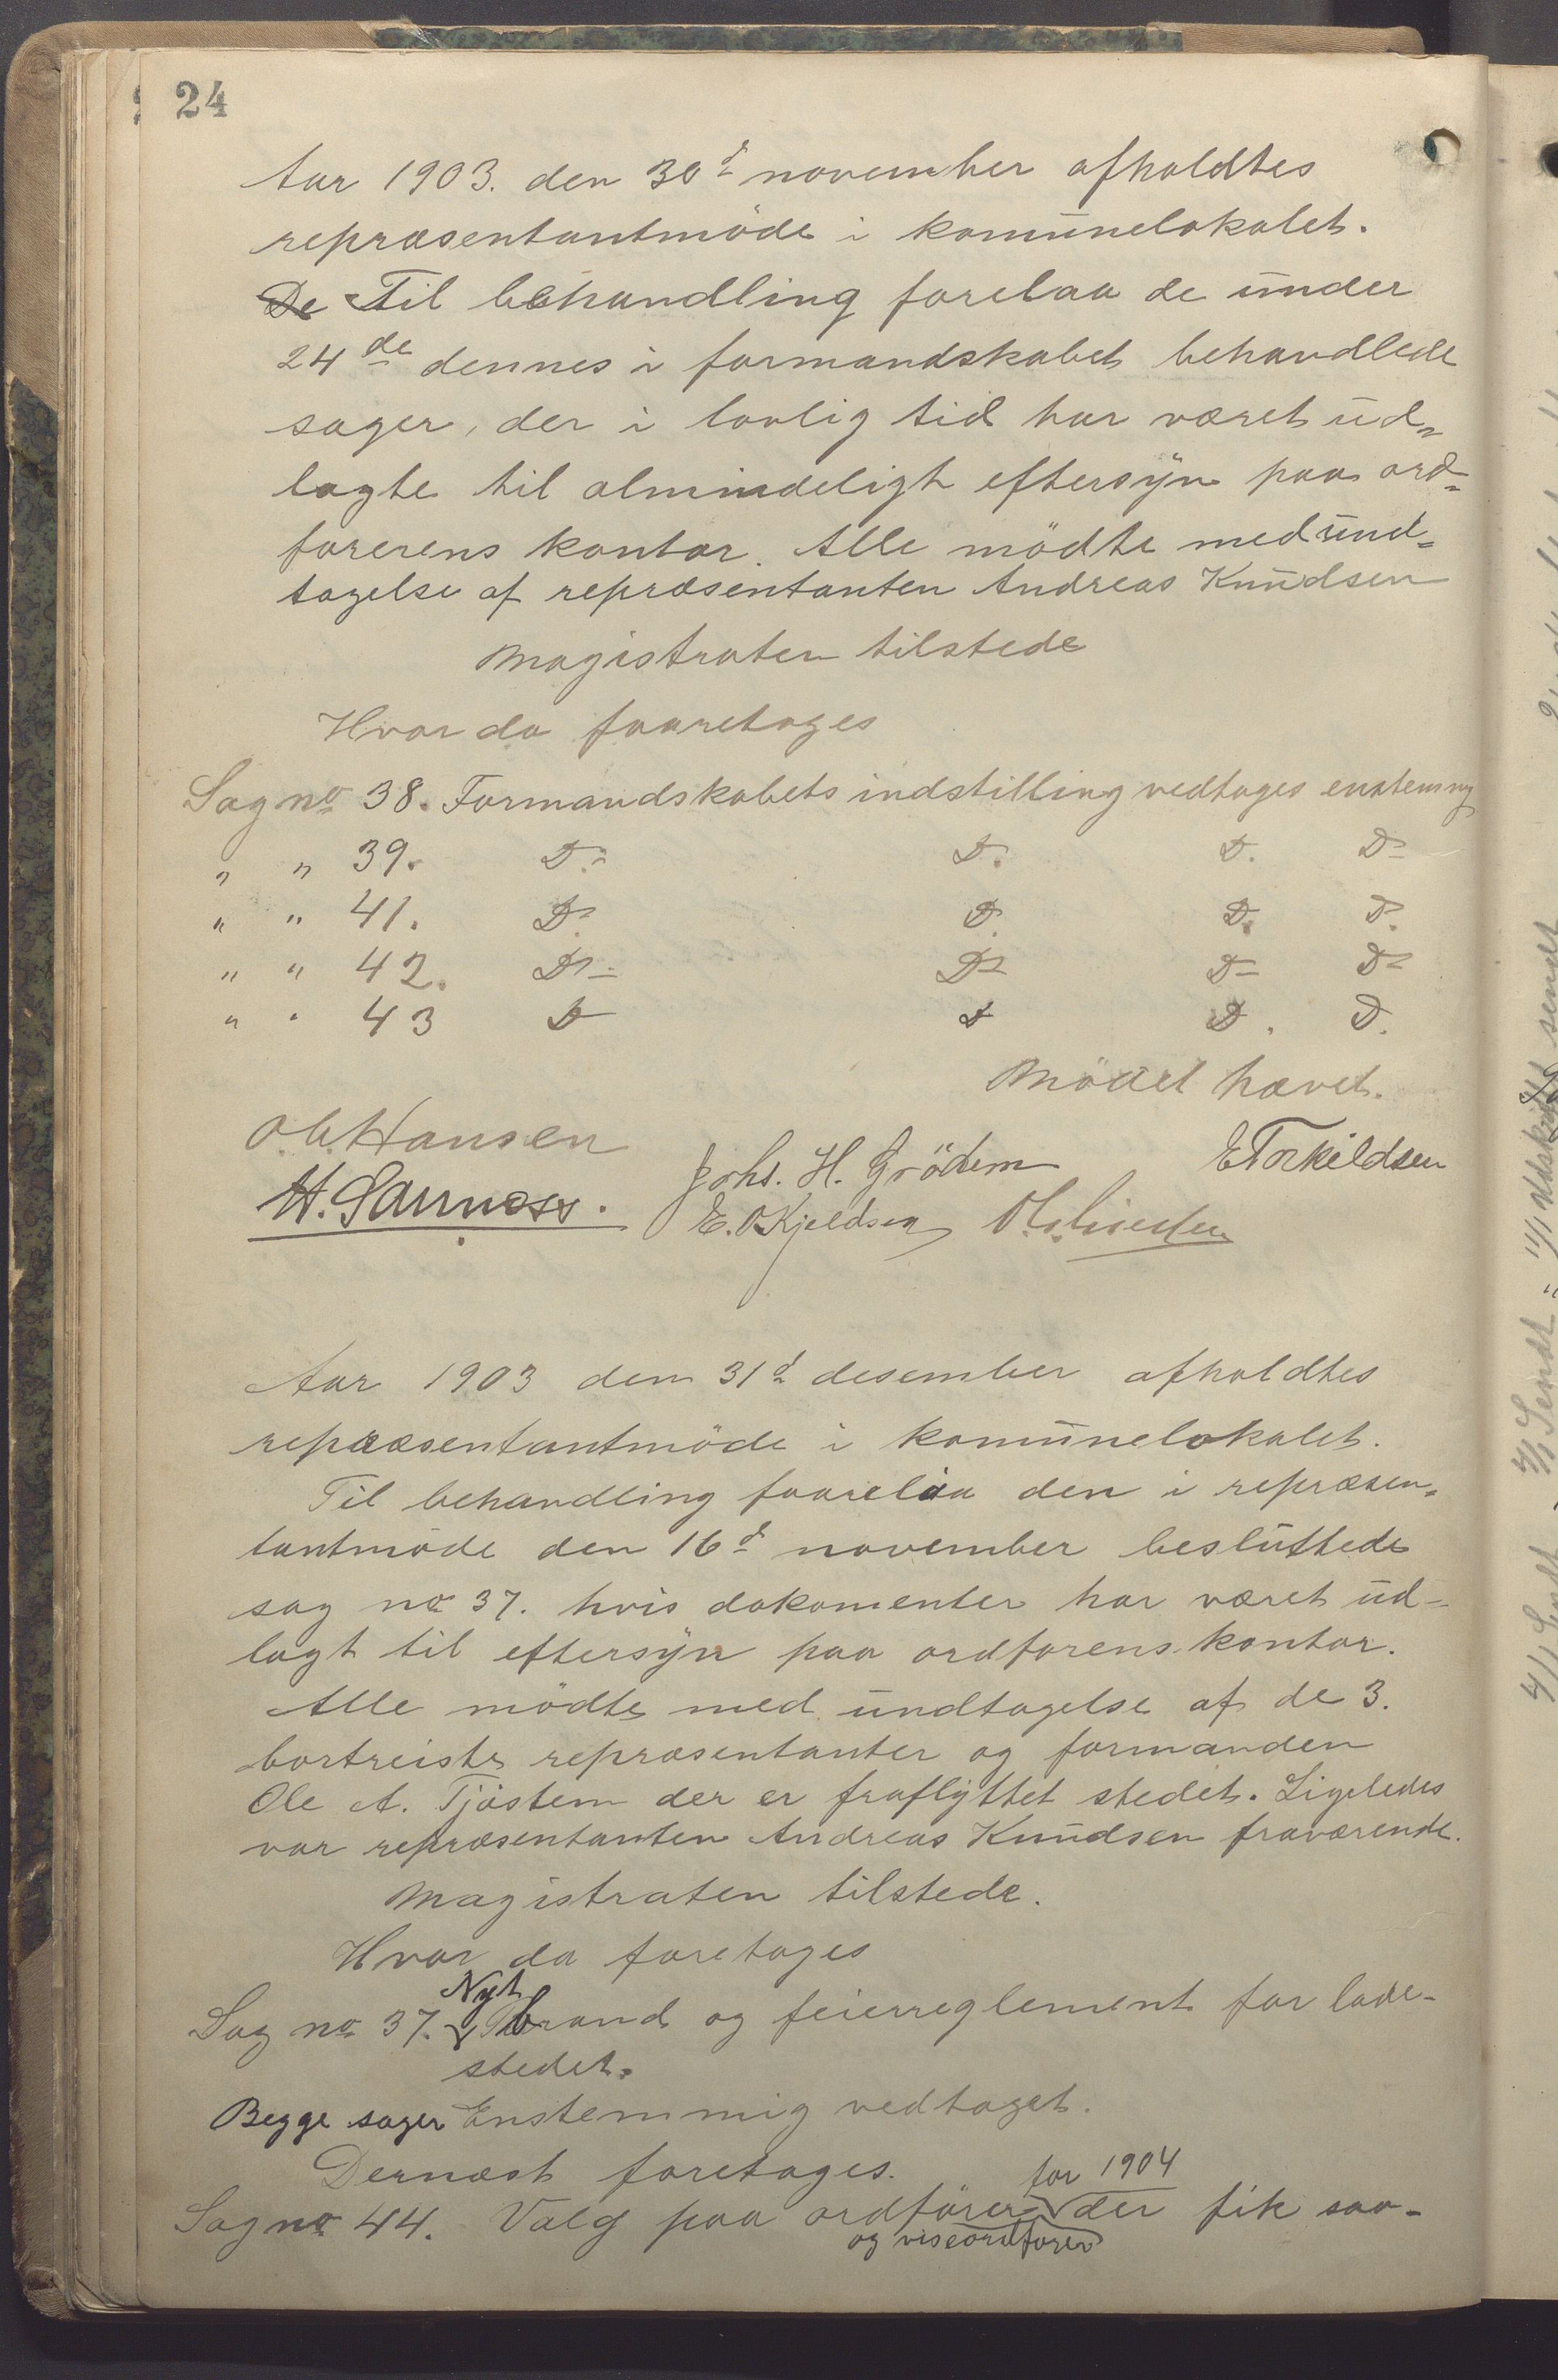 24
Aar 1903. den 30d november afholdtes
repræsentantmöde i komunelokalet.
De Til behandling forelaa de under
24de dennes i formandskabet behandlede
sager, der i lovlig tid har været ud=
lagte til almindeligt eftersyn paa ord=
forerens kontor. Alle mödte med und=
tagelse af repræsentanten Andreas Knudsen
Magistraten tilstede
Hvor da foaretages
Sag no 38. Formandskabets indstilling vedtages enstemig
" " 39. Do Do. Do. Do
" " 41. Do. Do. Do. Do.
" " 42. Do Do Do Do
" " 43 Do Do Do. Do.
Mödet hævet.
O. G. Hansen
Johs. H. Grödem
E Torkildsen
H. Sanness.
E. O Kjeldsen
Aar 1903 den 31d desember afholdtes
repræsentantmöde i komunelokalet.
Til behandling foarelaa den i repræsen=
tantmöde den 16d november besluttede
sag no 37. hvis dokomenter har været ud-
lagt til eftersyn paa ordforens kontor.
Alle mödte med undtagelse af de 3.
bortreiste repræsentanter og formanden
Ole A. Tjöstem der er fraflyttet stedet. Ligeledes
var repræsentanten Andreas Knudsen fraværende.
Magistraten tilstede.
Hvor da foretages
Nyt
Sag no 37. brand og feierreglement for lade-
stedet.
Begge sager Enstemmig vedtaget.
Dernæst foretages.
for 1904
Sag no 44. Valg paa ordförer der fik saa-
og viseordforer